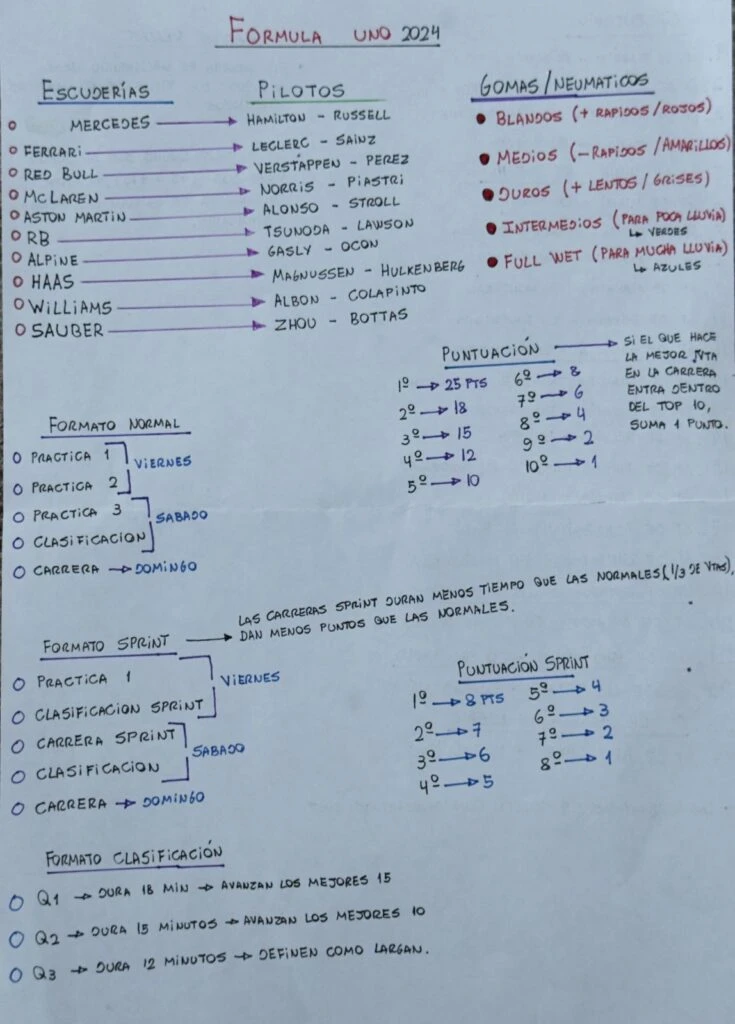 FORMULA UNO 2024
ESCUDERÍAS
PILOTOS
GOMAS/NEUMATICOS
MERCEDES → HAMILTON - RUSSELL
FERRARI → LECLERC - SAINZ
RED BULL → VERSTAPPEN - PEREZ
MCLAREN → NORRIS - PIASTRI
ASTON MARTIN → ALONSO - STROLL
RB → TSUNODA - LAWSON
ALPINE → GASLY - OCON
HAAS → MAGNUSSEN - HULKENBERG
WILLIAMS → ALBON - COLAPINTO
SAUBER → ZHOU - BOTTAS
BLANDOS (+ RAPIDOS/ROJOS)
MEDIOS (- RAPIDOS/AMARILLOS)
DUROS (+ LENTOS/GRISES)
INTERMEDIOS (PARA POCA LLUVIA)
↳ VERDES
FULL WET (PARA MUCHA LLUVIA)
↳ AZULES
PUNTUACIÓN →
1º → 25 PTS
2º → 18
3º → 15
4º → 12
5º → 10
6º → 8
7º → 6
8º → 4
9º → 2
10º → 1
SI EL QUE HACE
LA MEJOR VTA
EN LA CARRERA
ENTRA DENTRO
DEL TOP 10,
SUMA 1 PUNTO.
FORMATO NORMAL
PRACTICA 1
VIERNES
PRACTICA 2
PRACTICA 3
SABADO
CLASIFICACION
CARRERA → DOMINGO
FORMATO SPRINT →
LAS CARRERAS SPRINT DURAN MENOS TIEMPO QUE LAS NORMALES (1/3 DE VTAS),
DAN MENOS PUNTOS QUE LAS NORMALES.
PRACTICA 1
VIERNES
CLASIFICACION SPRINT
CARRERA SPRINT
SABADO
CLASIFICACION
CARRERA → DOMINGO
PUNTUACIÓN SPRINT
1º → 8 PTS
2º → 7
3º → 6
4º → 5
5º → 4
6º → 3
7º → 2
8º → 1
FORMATO CLASIFICACIÓN
Q1 → DURA 18 MIN → AVANZAN LOS MEJORES 15
Q2 → DURA 15 MINUTOS → AVANZAN LOS MEJORES 10
Q3 → DURA 12 MINUTOS → DEFINEN COMO LARGAN.